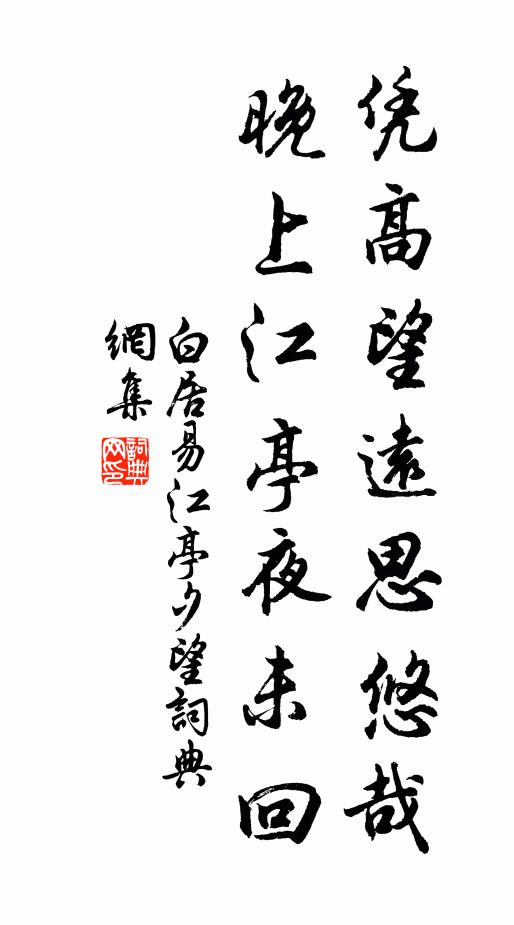 凭高望遠思悠哉
晚上江亭夜未回
白居易江亭夕望詞典
網集
詞典网印